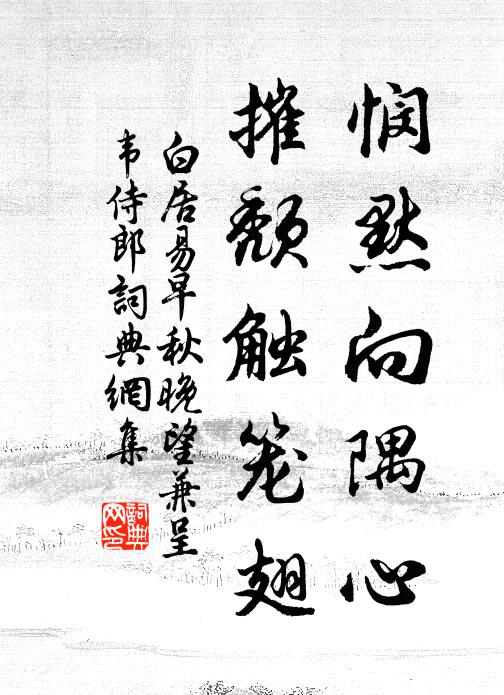 悯默向隅心
摧颓触笼翅
白居易早秋晚望兼呈
韦侍郎詞典網集
詞典
网印